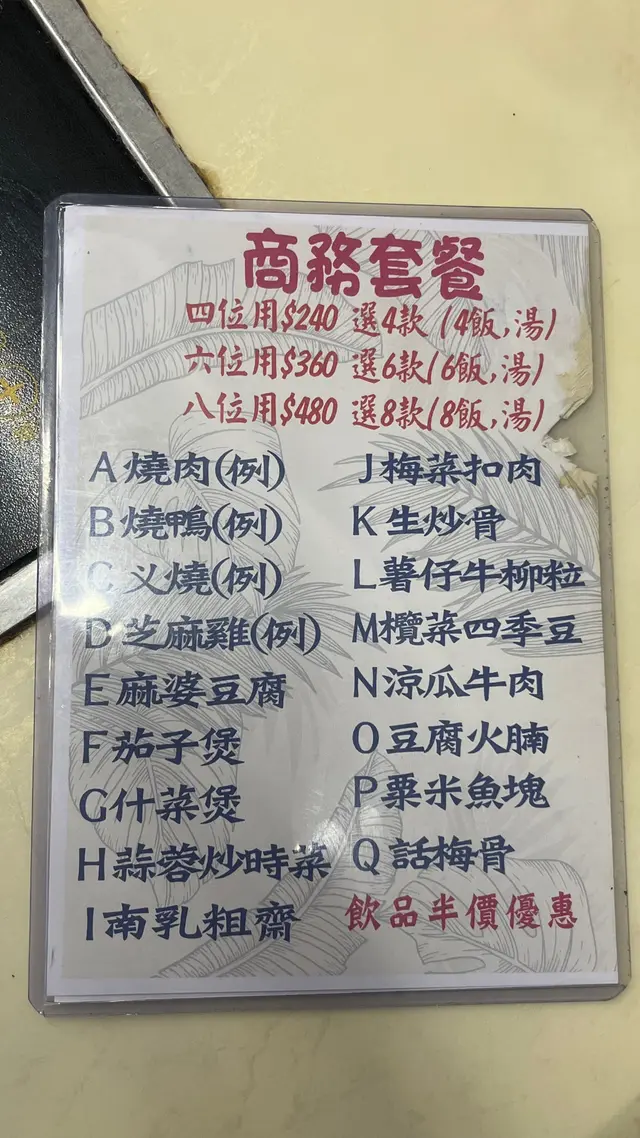 商務套餐
四位用$240 選4款 (4飯,湯)
六位用$360 選6款(6飯,湯)
八位用$480 選8款(8飯,湯)
A 燒肉(例)
B 燒鴨(例)
C 义燒(例)
D 芝麻雞(例)
E 麻婆豆腐
F 茄子煲
G 什菜煲
H 蒜蓉炒時菜
I 南乳粗齋
J 梅菜扣肉
K 生炒骨
L 薯仔牛柳粒
M 欖菜四季豆
N 涼瓜牛肉
O 豆腐火腩
P 粟米魚塊
Q 話梅骨
飲品半價優惠